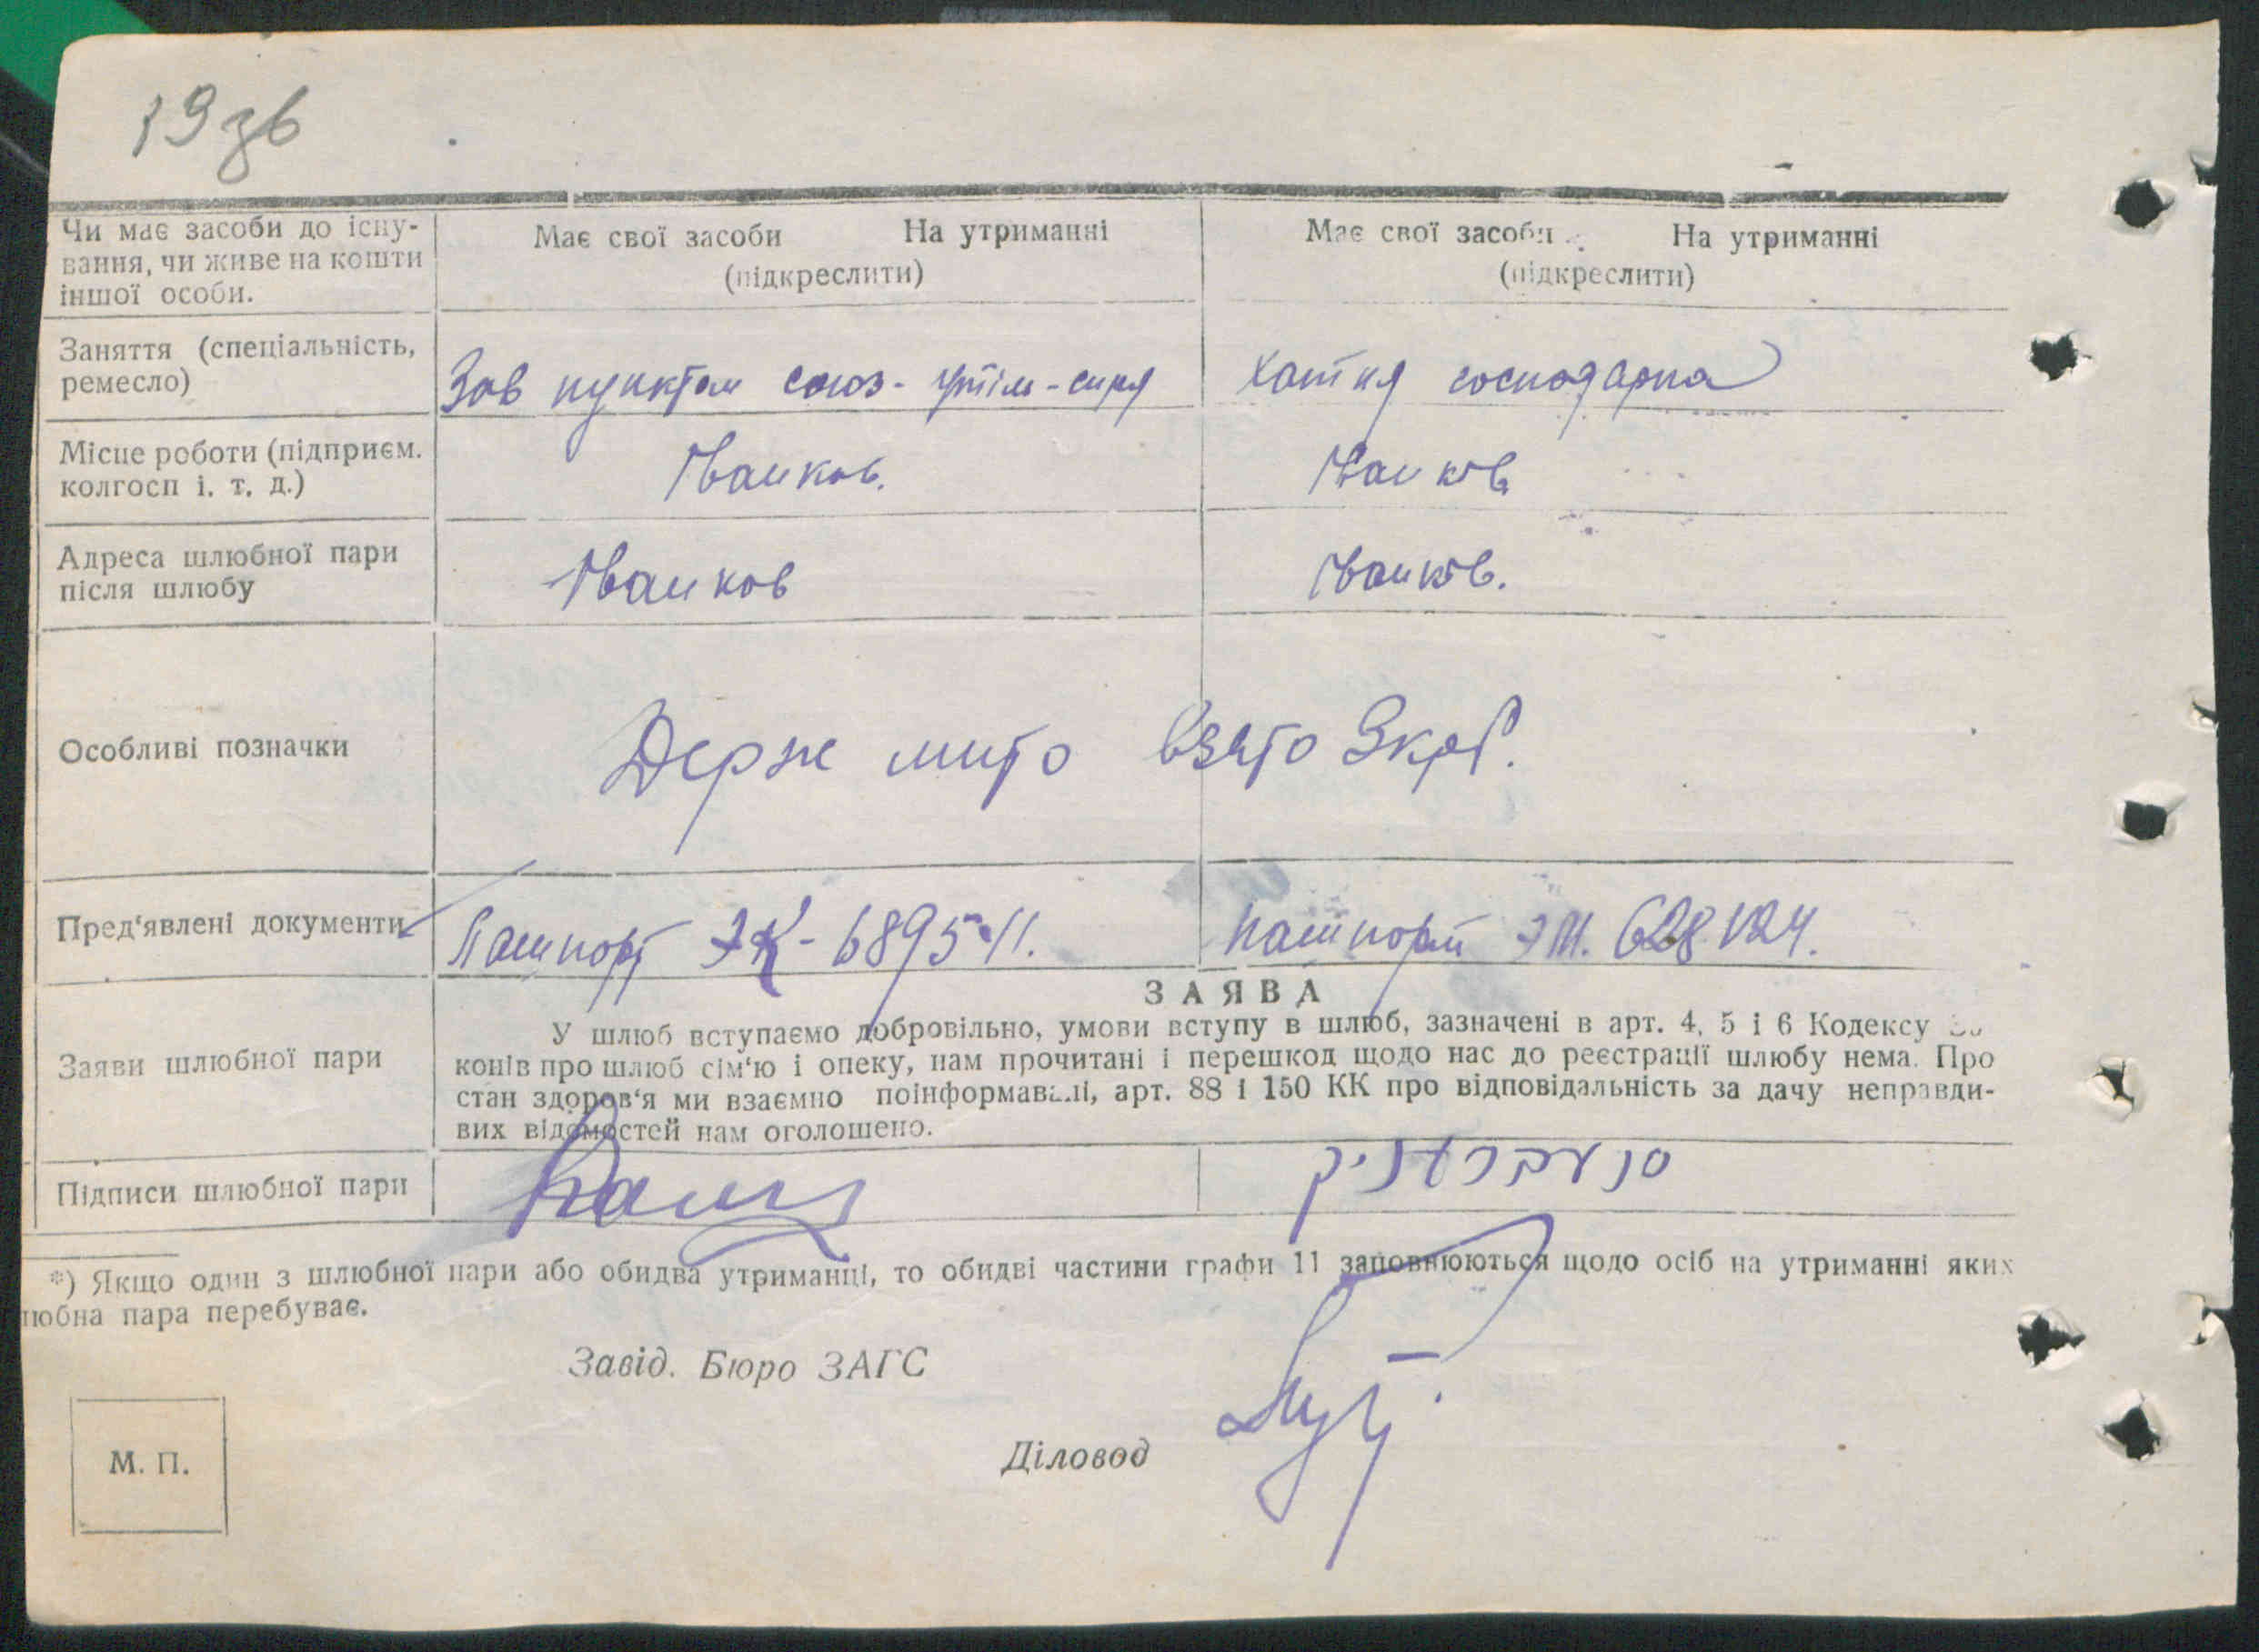 19зв
Чи має засоби до існу-
вання, чи живе на кошти
іншої особи.
Має свої засоби На утриманні
(підкреслити)
Має свої засоби На утриманні
(підкреслити)
Заняття (спеціальність,
ремесло)
Зав пунктом союз-утіль-сиря
хатня господарка
Місце роботи (підприєм.
колгосп і. т. д.)
Іванков.
Іванків
Адреса шлюбної пари
після шлюбу
Іванков
Іванків.
Особливі позначки
Держ мито взято 3 крб.
Пред'явлені документи
Пашпорт ЭК-689511.
пашпорт ЭМ. 628124.
Заяви шлюбної пари
ЗАЯВА
У шлюб вступаємо добровільно, умови вступу в шлюб, зазначені в арт. 4, 5 і 6 Кодексу
конів про шлюб сім'ю і опеку, нам прочитані і перешкод щодо нас до реєстрації шлюбу нема. Про
стан здоров'я ми взаємно поінформавалі, арт. 88 і 150 КК про відповідальність за дачу неправди-
вих відомостей нам оголошено.
Підписи шлюбної пари
*) Якщо один з шлюбної пари або обидва утриманці, то обидві частини графи 11 заповнюються щодо осіб на утриманні яких
юбна пара перебуває.
Завід. Бюро ЗАГС
Діловод
М. П.